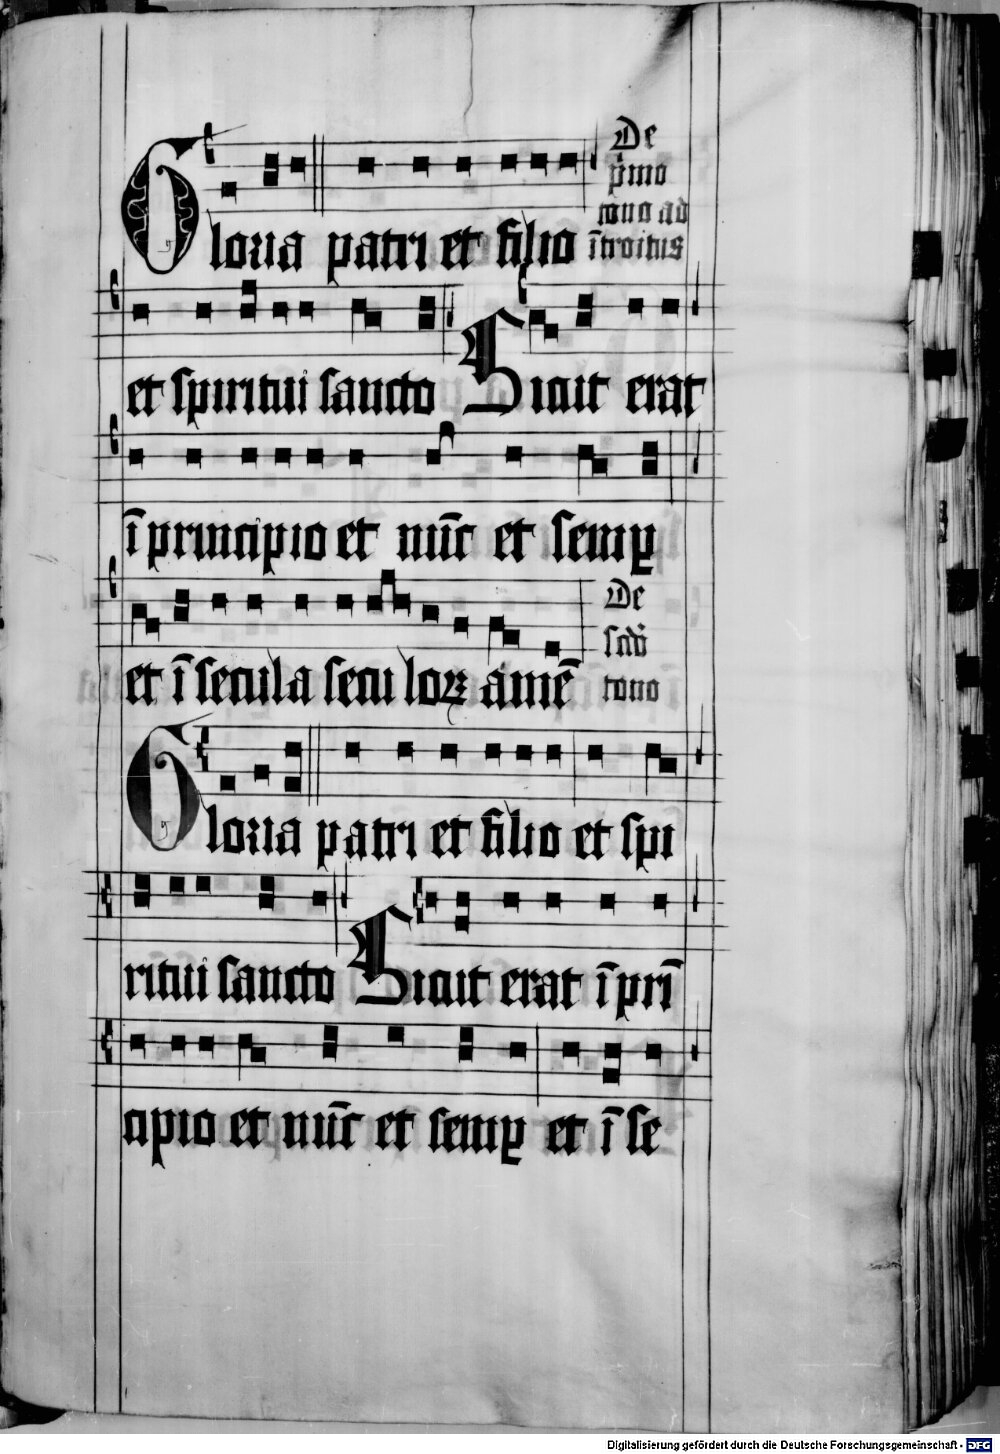 De
p̄mo
tono ad
Gloria patri et filio ītroitus
et spiritui sancto Sicut erat
ī principio et nūc et semꝑ
De
scd̄o
et ī secula seculoꝝ amē tono
Gloria patri et filio et spi
ritui sancto Sicut erat ī pri
cipio et nūc et semꝑ et ī se
Digitalisierung gefördert durch die Deutsche Forschungsgemeinschaft - DFG